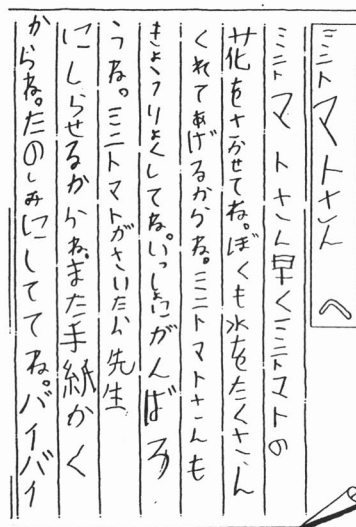 ミニトマトさんへ
ミニトマトさん早くミニトマトの
花をさかせてね。ぼくも水をたくさん
くれてあげるからね。ミニトマトさんも
きょうりょくしてね。いっしょにがんばろ
うね。ミニトマトがさいたら先生
にしらせるからね。また手紙かく
からね。たのしみにしててね。バイバイ